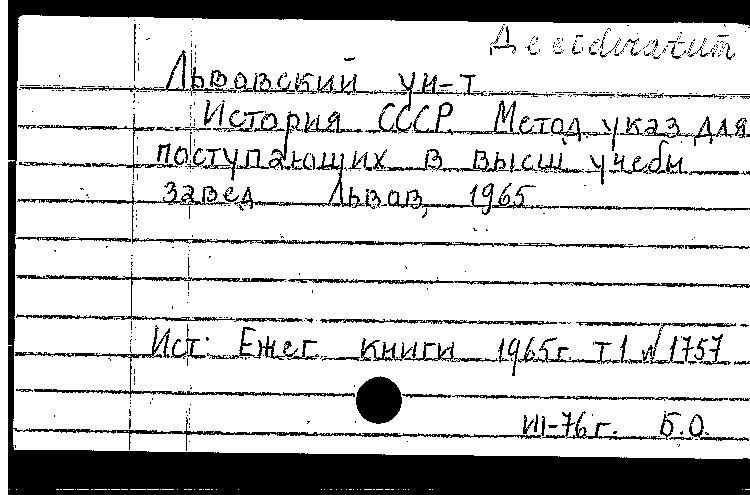 Desideratum
Львовский ун-т
История СССР. Метод указ для
поступающих в высш учебн
завед Львов, 1965
Ист: Ежег книги 1965г т1 №1757
VIII-76г. Б.О.